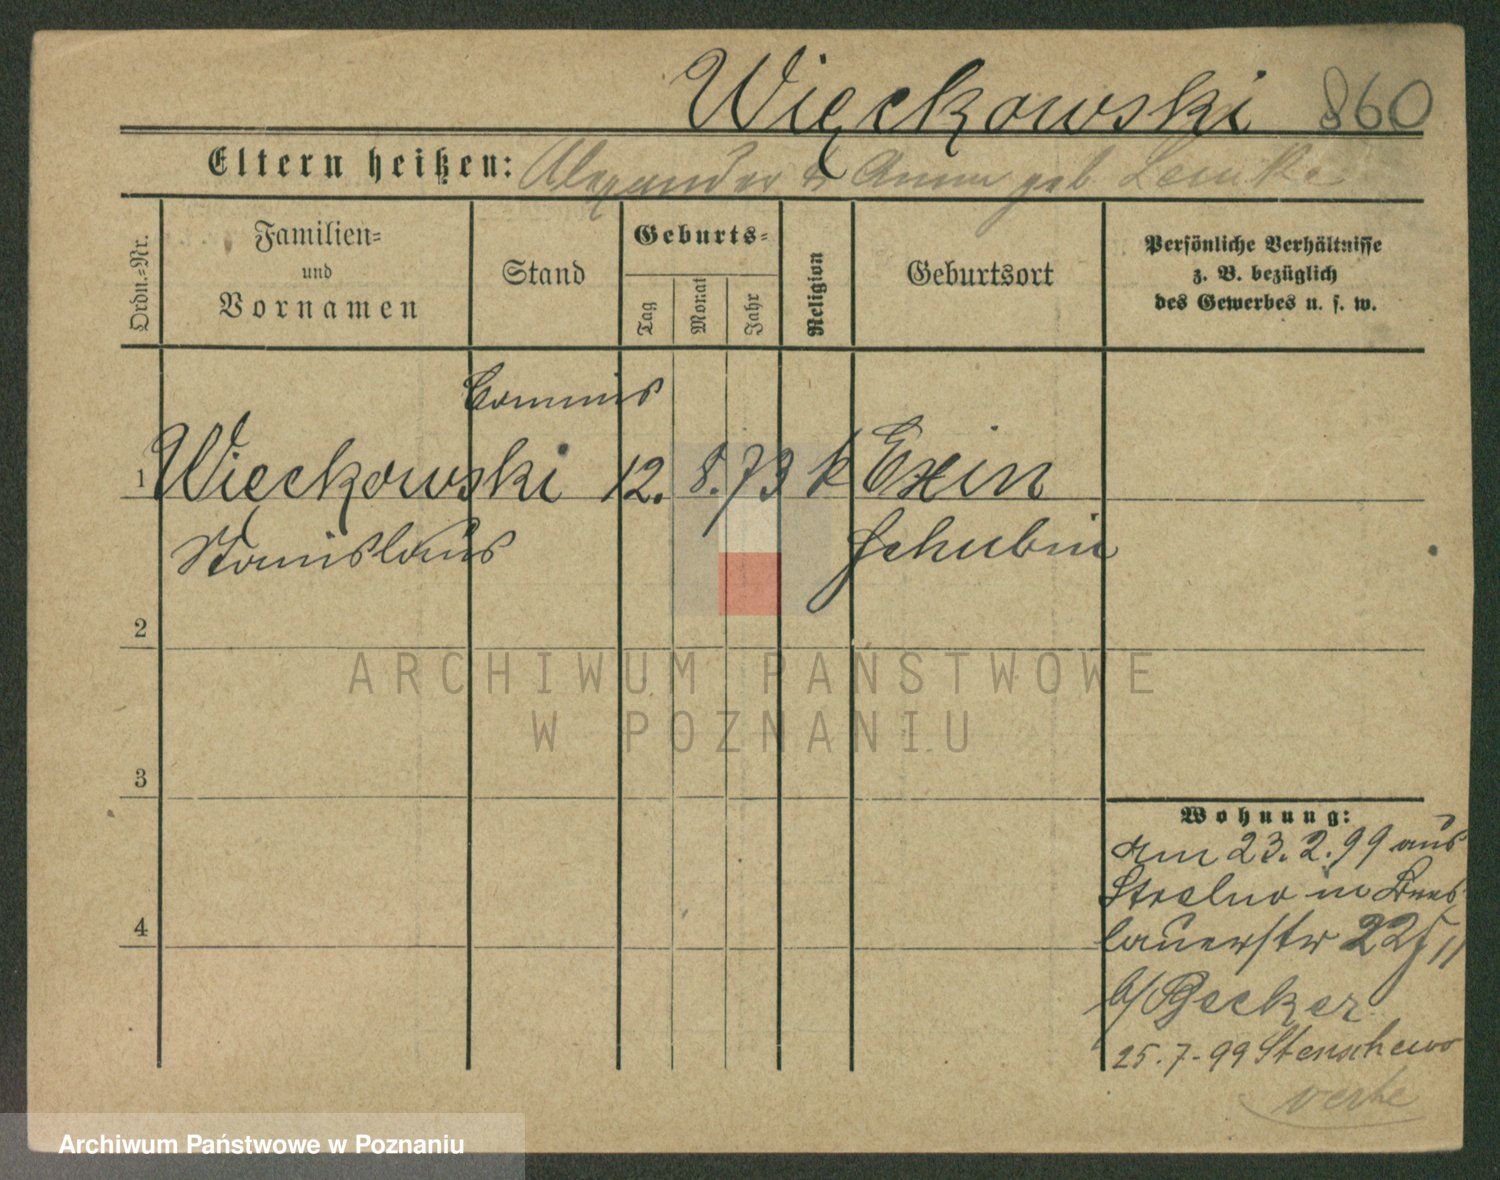 Więckowski 860
Eltern heißen: Alexander & Anna geb Lemke
Ordn.=Nr.
Familien=
und
Vornamen
Stand
Geburts=
Tag
Monat
Jahr
Religion
Geburtsort
Persönliche Verhältnisse
z. B. bezüglich
des Gewerbes u. s. w.
Commis
1 Więckowski 12. 8. 73 k Exin
Stanislaus Schubin
2
3
4
Wohnung:
am 23.2.99 aus
Strelno in Bres
lauerstr 22 II
b/ Becker
25.7-99 Stenschewo
ARCHIWUM PAŃSTWOWE
W POZNANIU
Archiwum Państwowe w Poznaniu